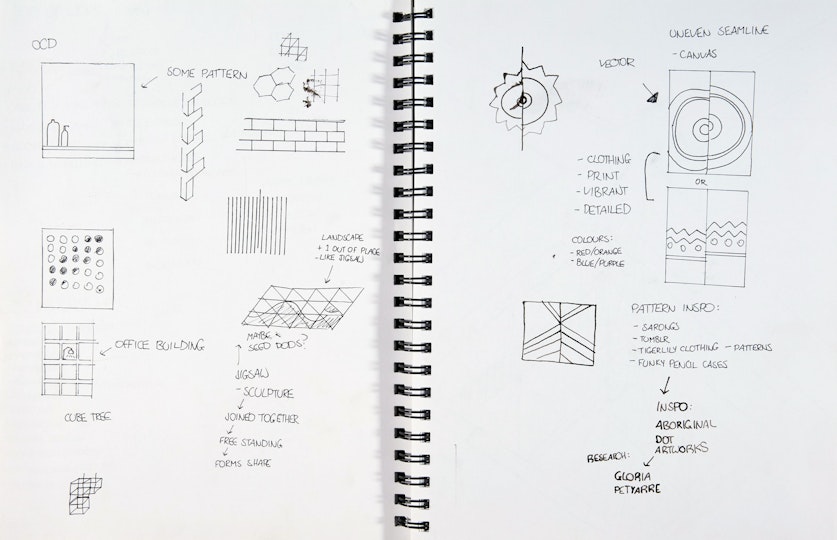 OCD
SOME PATTERN
LANDSCAPE
+ 1 OUT OF PLACE
- LIKE JIGSAW
OFFICE BUILDING
MAYBE
SEED PODS?
JIGSAW
- SCULPTURE
JOINED TOGETHER
FREE STANDING
FORMS SHAPE
CUBE TREE
UNEVEN SEAMLINE
- CANVAS
VECTOR
- CLOTHING
- PRINT
- VIBRANT
- DETAILED
OR
COLOURS:
- RED/ORANGE
- BLUE/PURPLE
PATTERN INSPO:
- SARONGS
- TUMBLR
- TIGERLILY CLOTHING - PATTERNS
- FUNKY PENCIL CASES
INSPO:
ABORIGINAL
DOT
ARTWORKS
RESEARCH:
GLORIA
PETYARRE